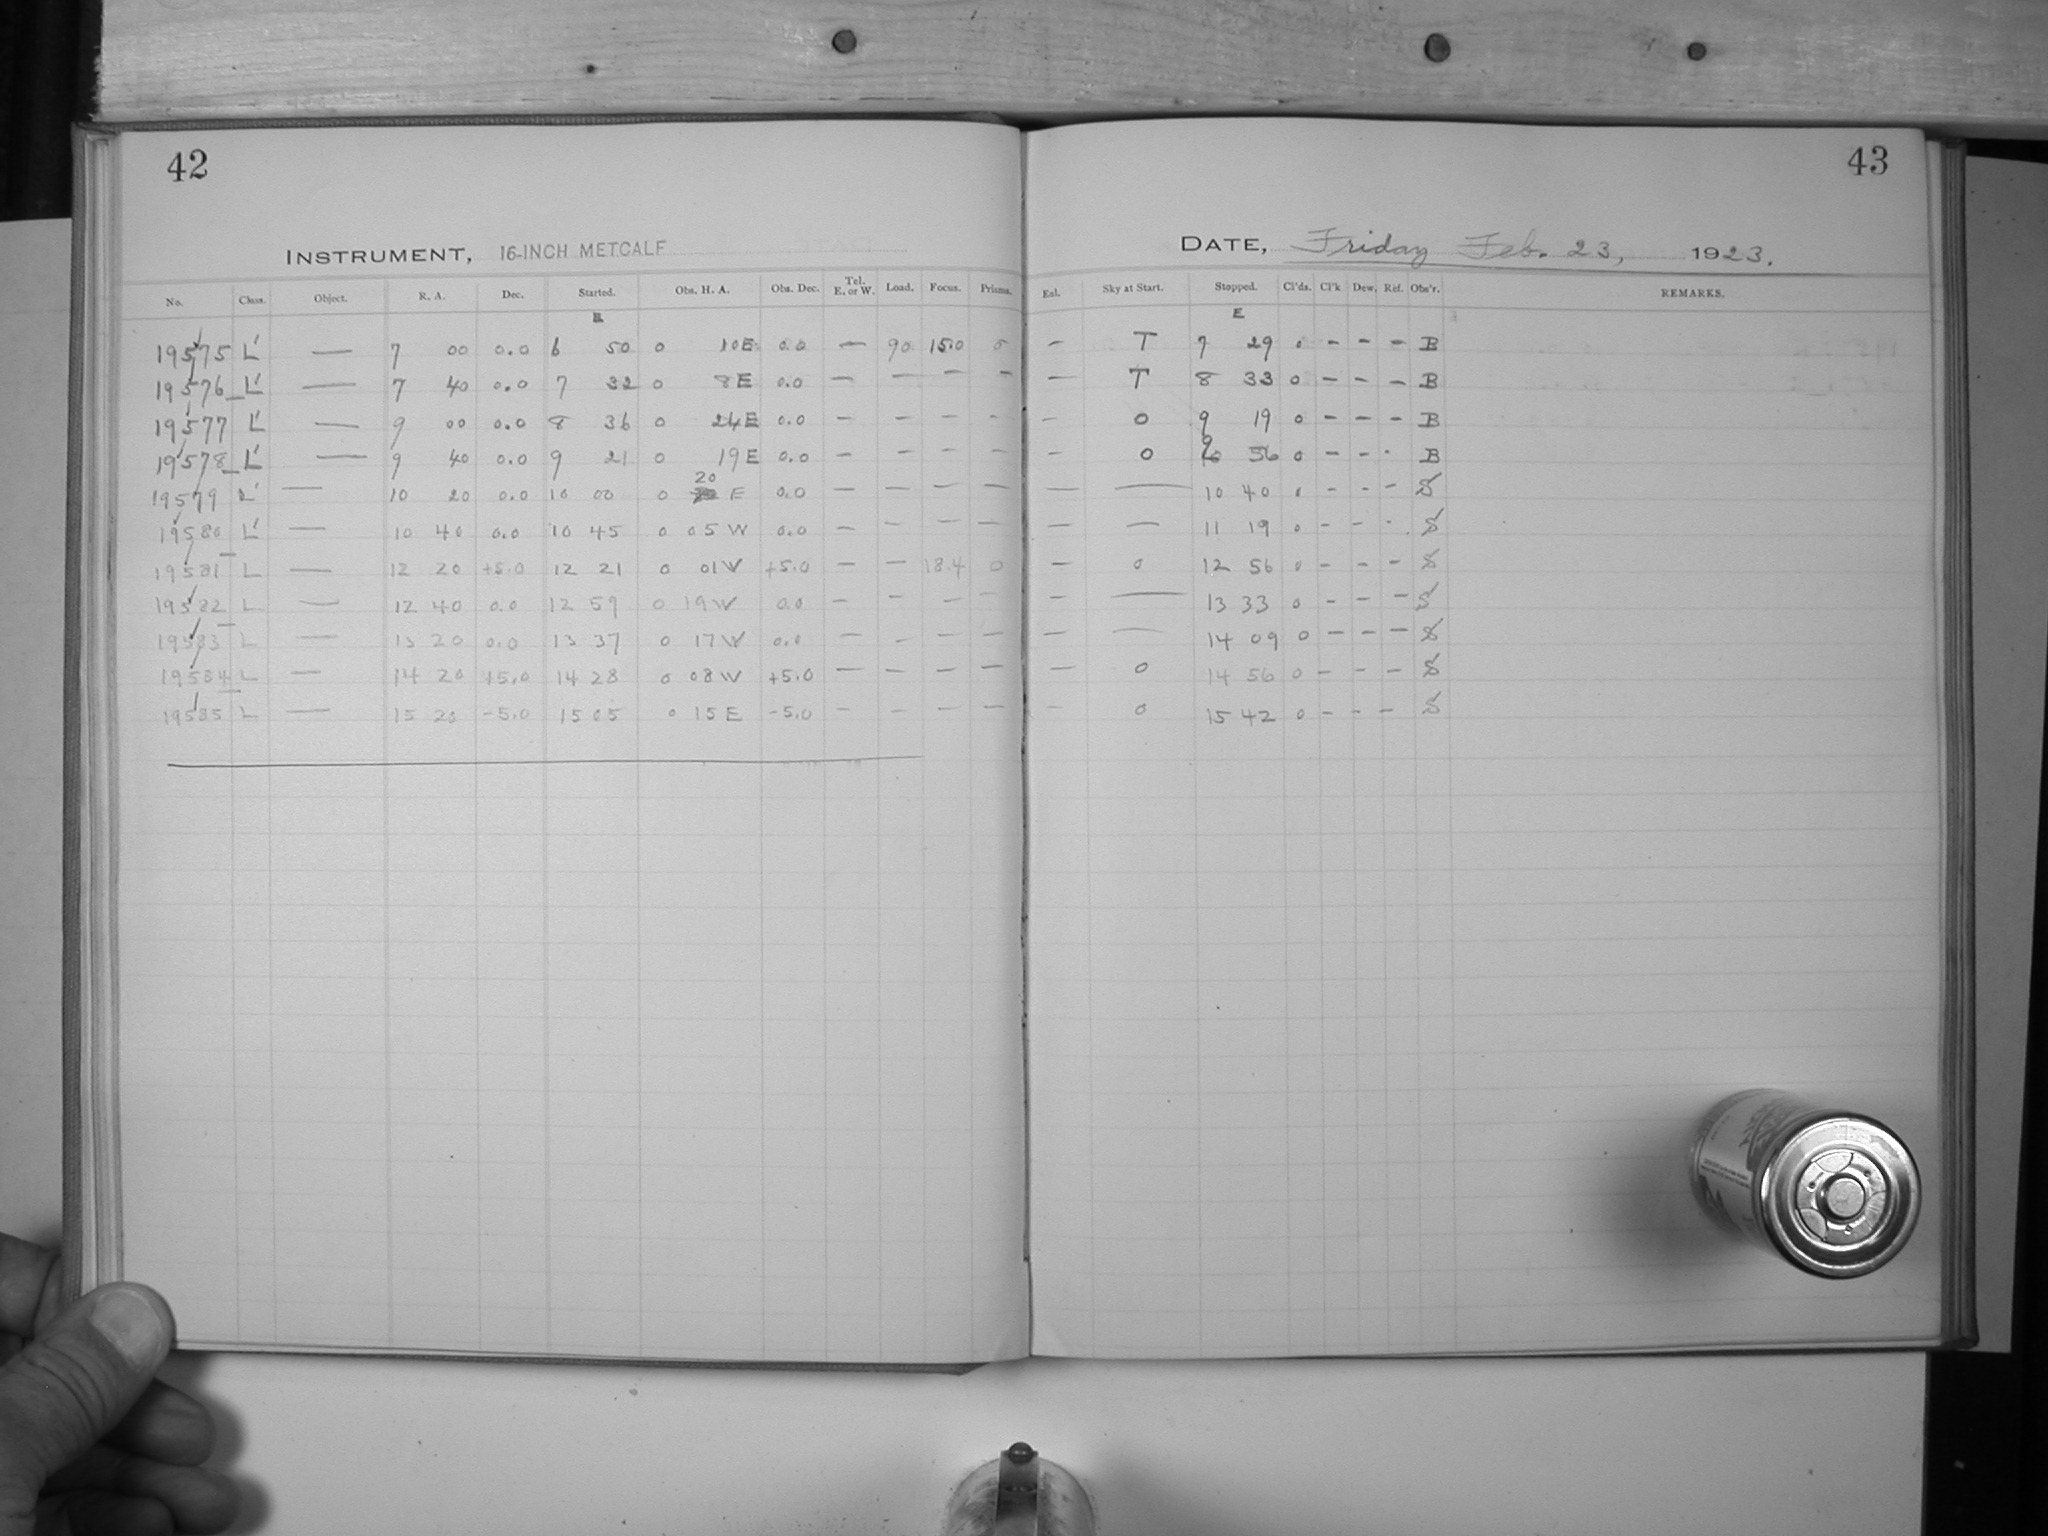 42
43
INSTRUMENT, 16-INCH METCALF
DATE, Friday Feb. 23, 1923.
No. Class. Object. R. A. Dec. Started. Obs. H. A. Obs. Dec. Tel. E. or W. Load. Focus. Prisms. Exl. Sky at Start. Stopped. Cl'ds. Cl'k Dew. Ref. Obs'r. REMARKS.
E
19575 L' — 7 00 0.0 6 50 0 10E 0.0 — 90 15.0 0 — T 7 29 0 — — — B
19576 L' — 7 40 0.0 7 32 0 8E 0.0 — — — — — T 8 33 0 — — — B
19577 L' — 9 00 0.0 8 36 0 24E 0.0 — — — — — 0 9 19 0 — — — B
19578 L' — 9 40 0.0 9 21 0 19E 0.0 — — — — — 0 9 56 0 — — - B
19579 L' — 10 20 0.0 10 00 0 20 E 0.0 — — — — — — 10 40 0 - - - S
19580 L' — 10 40 0.0 10 45 0 05 W 0.0 — — — — — — 11 19 0 - - - S
19581 L — 12 20 +5.0 12 21 0 01W +5.0 — — 18.4 0 — 0 12 56 0 - - - S
19582 L — 12 40 0.0 12 59 0 19W 0.0 — — — — — — 13 33 0 - - - S
19583 L — 13 20 0.0 13 37 0 17W 0.0 — — — — — — 14 09 0 — — — S
19584 L — 14 20 +5.0 14 28 0 08W +5.0 — — — — — 0 14 56 0 — — — S
19585 L — 15 20 -5.0 15 05 0 15E -5.0 — — — — — 0 15 42 0 - - - S